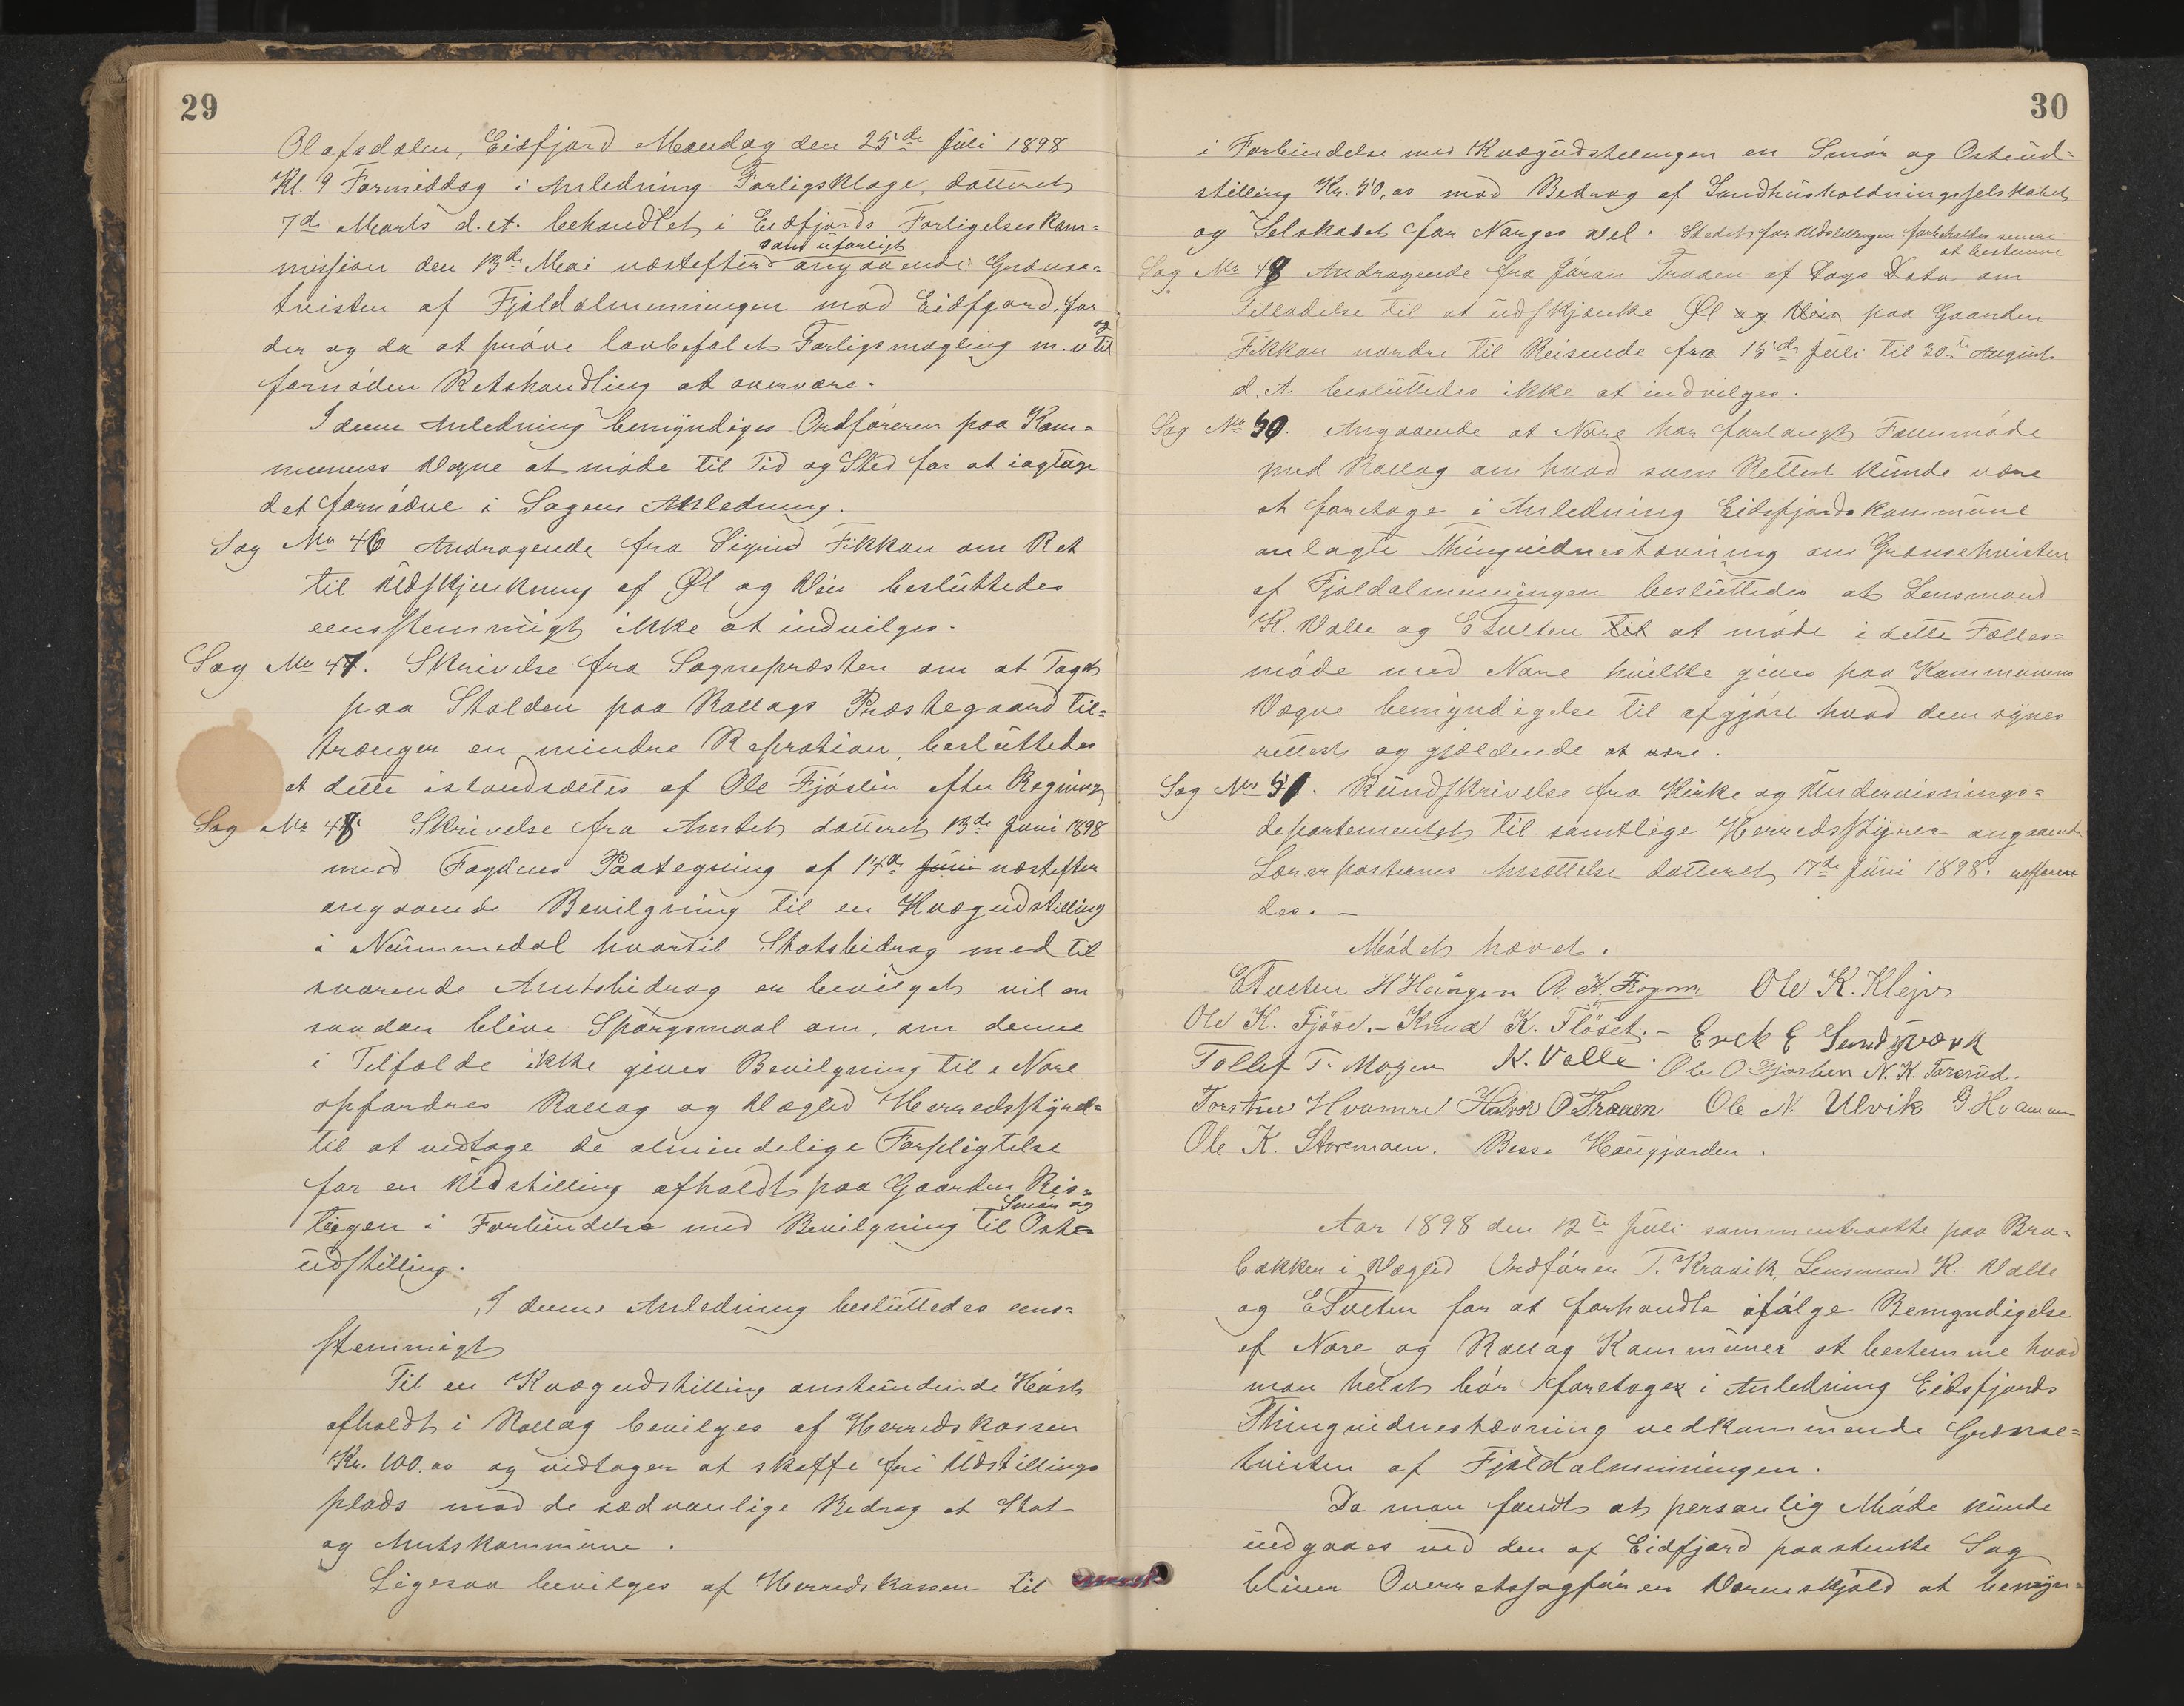 29
Olafsdalen, Eidfjord Mandag den 25de Juli 1898
Kl. 9 Formiddag i Anledning Forligsklage, datteret
7de Marts d.A. behandlet i Eidfjords Forligelseskom=
mission den 13de Mai næstefter som uforligt angaaende Grænse=
tvisten af Fjeldalmenningen mod Eidfjord, for
der og da at prøve lovbefalet Forligsmægling m.v og til
fornøden Retshandling at overvære.
I denne Anledning bemyndiges Ordføreren paa Kom=
munens Vegne at møde til Tid og Sted for at iagtage
det fornødne i Sagens Anledning.
Sag No 46 Andragende fra Sigrid Fikkan om Ret
til Udskjænkning af Øl og Vin besluttedes
eensstemmigt ikke at indvilges.
Sag No 47. Skrivelse fra Sognepræsten om at Taget
paa Stalden paa Rollags Præstegaard til=
trænger en mindre Repration, besluttedes
at dette istandsættes af Ole Fjøslin efter Regning
Sag No 48 Skrivelse fra Amtet datteret 13de Juni 1898
med Fogdens Paategning af 14de Juni næstefter
angaaende Bevilgning til en Kvægudstilling
i Nummedal hvortil Statsbidrag med til
svarende Amtsbidrag er bevilget vil en
saadan blive Spørgsmaal om, om denne
i Tilfælde ikke gives Bevilgning til i Nore
opfordres Rollag og Vægled Herredsstyrel=
til at vedtage de almindelige Forpligtelse
for en Udstilling afholdt paa Gaarden Ris=
teigen i Forbindelse med Bevilgning til Smør og Oste=
udstilling.
I denne Anledning besluttedes eens=
stemmigt
Til en Kvægudstilling anstundende Høst
afholdt i Rollag bevilges af Herredskassen
Kr. 100.00 og vedtager at skaffe fri Udstillings
plads mod de sædvanlige Bidrag at Stat
og Amtskommune.
Ligesaa bevilges af Herredskassen til
30
i Forbindelse med Kvægudstillingen en Smør og Osteud=
stilling Kr. 50,00 mod Bidrag af Landhusholdningsselskabet
og Selskabet for Norges Vel. Stedet for Udstillingen forbeholdes senere
at bestemme
Sag No 49 Andragende fra Jøran Traaen af Dags Dato om
Tilladelse til at udskjænke Øl og Vin paa Gaarden
Fikkan nordre til Reisende fra 15de Juli til 30te August
d.A. besluttedes ikke at indvilges.
Sag No 50. Angaaende at Nore har forlangt Fællesmøde
med Rollag om hvad som Rettest kunde være
at foretage i Anledning Eidsfjords kommune
anlagte Thingvidnestævning om Grænsetvisten
af Fjeldalmenningen besluttedes at Lensmand
K. Valle og E Tveten til at møde i dette Fælles=
møde med Nore hvilke gives paa Kommunens
Vegne bemyndigelse til afgjøre hvad dem synes
rettest og gjældende at være.
Sag No 51. Rundskrivelse fra Kirke og Undervisnings=
departementet til samtlige Herredsstyrer angaaende
Lærerposternes Ansættelse datteret 17de Juni 1898. refferer
des. —
Mødet hævet.
E Tveten H Haugen A. K. Frogom Ole K. Klejv
Ole K. Fjøse.- Knud K. Fløset.- Erek E Sundqværk
Tollef T. Mogen K. Valle. Ole O Fjøslien N. K. Forsrud.
Torsten Hvamre Halvor O Traaen Ole N. Ulvik G Hvammen
Ole K. Stormoen. Besse Haugjorden.
Aar 1898 den 12te Juli sammentraatte paa Bra=
bakken i Vægled Ordfører T. Kravik, Lensmand K. Valle
og E Tveten for at forhandle ifølge Bemyndigelse
af Nore og Rollag Kommuner at bestemme hvad
man helst bør foretages i Anledning Eidsfjords
Thingvidnestævning vedkommende Grænse=
tvisten af Fjeldalmenningen.
Da man fandt at personlig Møde kunde
undgaaes ved den af Eidfjord paastente Sag
bliver Overretssagfører Varenskjold at bemyn=